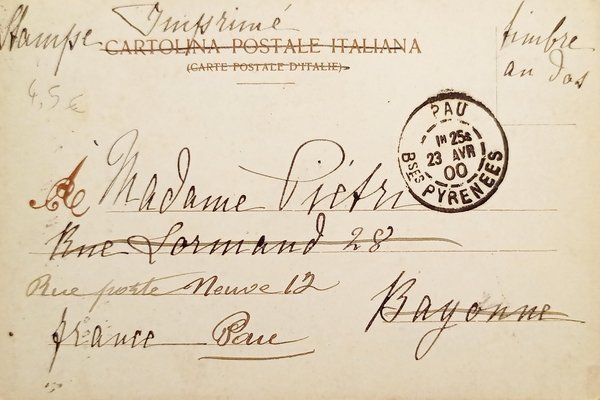 Stampe Imprimé timbre
au dos
CARTOLINA POSTALE ITALIANA
(CARTE POSTALE D'ITALIE)
4,5€
PAU
1H 25s
23 AVR
00
BSES PYRENEES
A Madame Piétri
Rue Lormand 28
Rue porte Neuve 12
Bayonne
france Pau